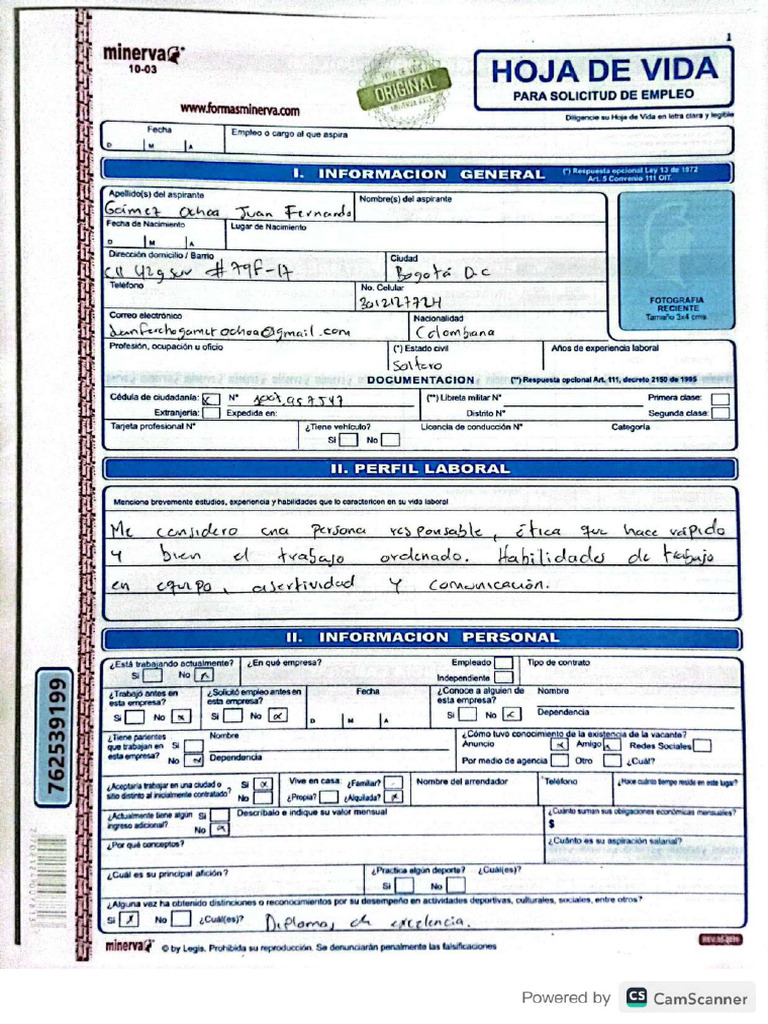 1
minerva
10-03
HOJA DE VIDA
ORIGINAL
PARA SOLICITUD DE EMPLEO
www.formasminerva.com
Diligencie su Hoja de Vida en letra clara y legible
Fecha Empleo o cargo al que aspira
D M A
I. INFORMACION GENERAL (*) Respuesta opcional Ley 13 de 1972
Art. 5 Convenio 111 OIT.
Apellido(s) del aspirante Nombre(s) del aspirante
Gamez Ochoa Juan Fernando
Fecha de Nacimiento Lugar de Nacimiento
D M A
Dirección domicilio / Barrio Ciudad
Cll 42g sur # 79F-17 Bogotá D.C
Teléfono No. Celular
3012127724
FOTOGRAFIA
RECIENTE
Tamaño 3x4 cms
Correo electrónico Nacionalidad
@gmail.com Colombiana
Profesión, ocupación u oficio (*) Estado civil Años de experiencia laboral
Soltero
DOCUMENTACION (**) Respuesta opcional Art. 111, decreto 2150 de 1995
Cédula de ciudadanía: x N° (**) Libreta militar N° Primera clase:
Extranjería: Expedida en: Distrito N° Segunda clase:
Tarjeta profesional N° ¿Tiene vehículo? Licencia de conducción N° Categoría
Si No
II. PERFIL LABORAL
Mencione brevemente estudios, experiencia y habilidades que lo caractericen en su vida laboral
Me considero una persona responsable, ética que hace rápido
y bien el trabajo ordenado. Habilidades de trabajo
en equipo, asertividad y comunicación.
II. INFORMACION PERSONAL
¿Está trabajando actualmente? ¿En qué empresa? Empleado Tipo de contrato
Si No x Independiente
¿Trabajó antes en esta empresa? ¿Solicitó empleo antes en esta empresa? Fecha ¿Conoce a alguien de esta empresa? Nombre
Si No x Si No x D M A Si No x Dependencia
¿Tiene parientes Nombre ¿Cómo tuvo conocimiento de la existencia de la vacante?
que trabajan en Si Anuncio x Amigo x Redes Sociales
esta empresa? No x Dependencia Por medio de agencia Otro ¿Cuál?
¿Aceptaría trabajar en una ciudad o Si x Vive en casa: ¿Familiar? Nombre del arrendador Teléfono ¿Hace cuánto tiempo reside en este lugar?
sitio distinto al inicialmente contratado? No ¿Propia? ¿Alquilada? x
¿Actualmente tiene algún Si Descríbalo e indique su valor mensual ¿Cuánto suman sus obligaciones económicas mensuales?
ingreso adicional? No x $
¿Por qué conceptos? ¿Cuánto es su aspiración salarial?
¿Cuál es su principal afición? ¿Practica algún deporte? ¿Cuál(es)?
Si No
¿Alguna vez ha obtenido distinciones o reconocimientos por su desempeño en actividades deportivas, culturales, sociales, entre otros?
Si x No ¿Cuál(es)? Diplomas de excelencia.
minerva © by Legis. Prohibida su reproducción. Se denunciarán penalmente las falsificaciones
762539199
Powered by CS CamScanner